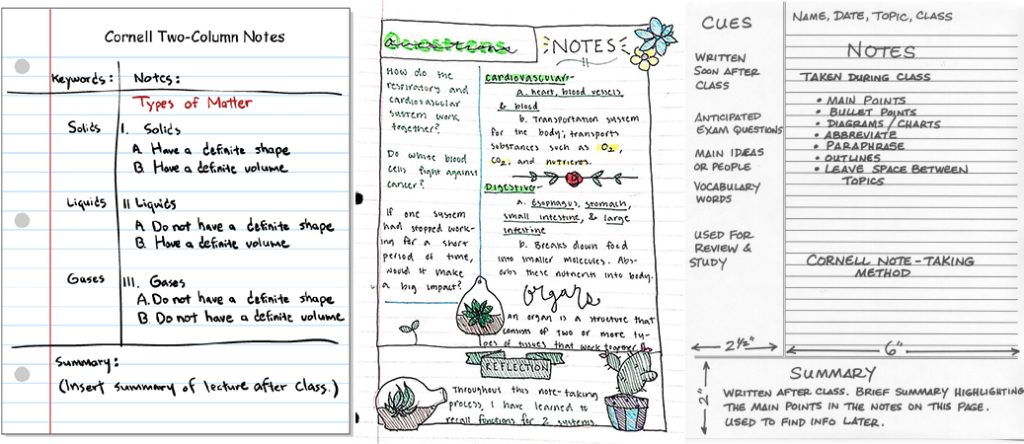 Cornell Two-Column Notes
Keywords:
Notes:
Types of Matter
Solids
I. Solids
A. Have a definite shape
B. Have a definite volume
Liquids
II Liquids
A. Do not have a definite shape
B. Have a definite volume
Gases
III. Gases
A. Do not have a definite shape
B. Do not have a definite volume
Summary:
(Insert summary of lecture after class.)
Questions
How do the
respiratory and
cardiovascular
system work
together?
Do white blood
cells fight against
cancer?
If one system
had stopped work-
ing for a short
period of time,
would it make
a big impact?
NOTES
cardiovascular-
a. heart, blood vessels,
& blood
b. Transportation system
for the body; transports
substances such as O2,
CO2, and nutrients.
Digestive-
a. Esophagus, stomach,
small intestine, & large
intestine
b. Breaks down food
into smaller molecules. Abs-
orbs these nutrients into body.
Organs
an organ is a structure that
consists of two or more ty-
pes of tissues that work together.
REFLECTION
Throughout this note-taking
process, I have learned to
recall functions for 2 systems.
CUES
WRITTEN
SOON AFTER
CLASS
ANTICIPATED
EXAM QUESTIONS
MAIN IDEAS
OR PEOPLE
VOCABULARY
WORDS
USED FOR
REVIEW &
STUDY
NAME, DATE, TOPIC, CLASS
NOTES
TAKEN DURING CLASS
• MAIN POINTS
• BULLET POINTS
• DIAGRAMS/CHARTS
• ABBREVIATE
• PARAPHRASE
• OUTLINES
• LEAVE SPACE BETWEEN
TOPICS
CORNELL NOTE-TAKING
METHOD
2 1/2"
6"
2"
SUMMARY
WRITTEN AFTER CLASS. BRIEF SUMMARY HIGHLIGHTING
THE MAIN POINTS IN THE NOTES ON THIS PAGE.
USED TO FIND INFO LATER.